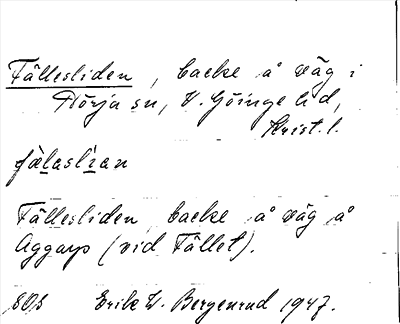 Fällesliden, backe å väg i
Nörja sn, V. Göinge hd,
Krist. l.
fälaslian
Fällesliden backe å väg å
Aggarp (vid Fället).
Erik W. Bergenrud 1947.